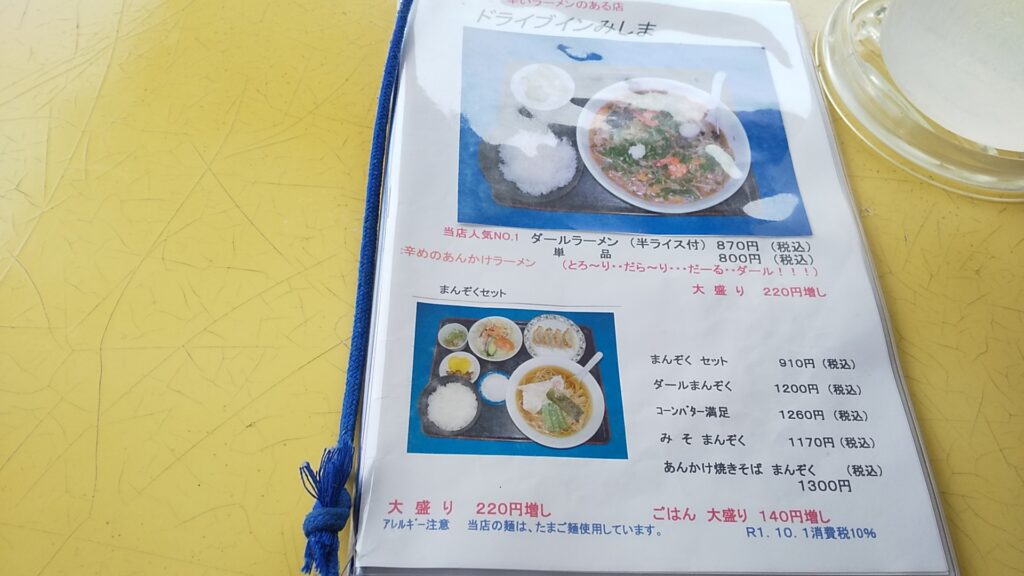 辛いラーメンのある店
ドライブインみしま
当店人気NO.1 ダールラーメン (半ライス付) 870円 (税込)
単 品 800円 (税込)
:辛めのあんかけラーメン (とろ～り‥だら～り・・・だーる‥ダール!!!)
大 盛 り 220円増し
まんぞくセット
まんぞく セット 910円 (税込)
ダールまんぞく 1200円 (税込)
コーンバター満足 1260円 (税込)
み そ まんぞく 1170円 (税込)
あんかけ焼きそば まんぞく (税込)
1300円
大 盛 り 220円増し
ごはん 大盛り 140円増し
アレルギー注意 当店の麺は、たまご麺使用しています。
R1. 10. 1消費税10%